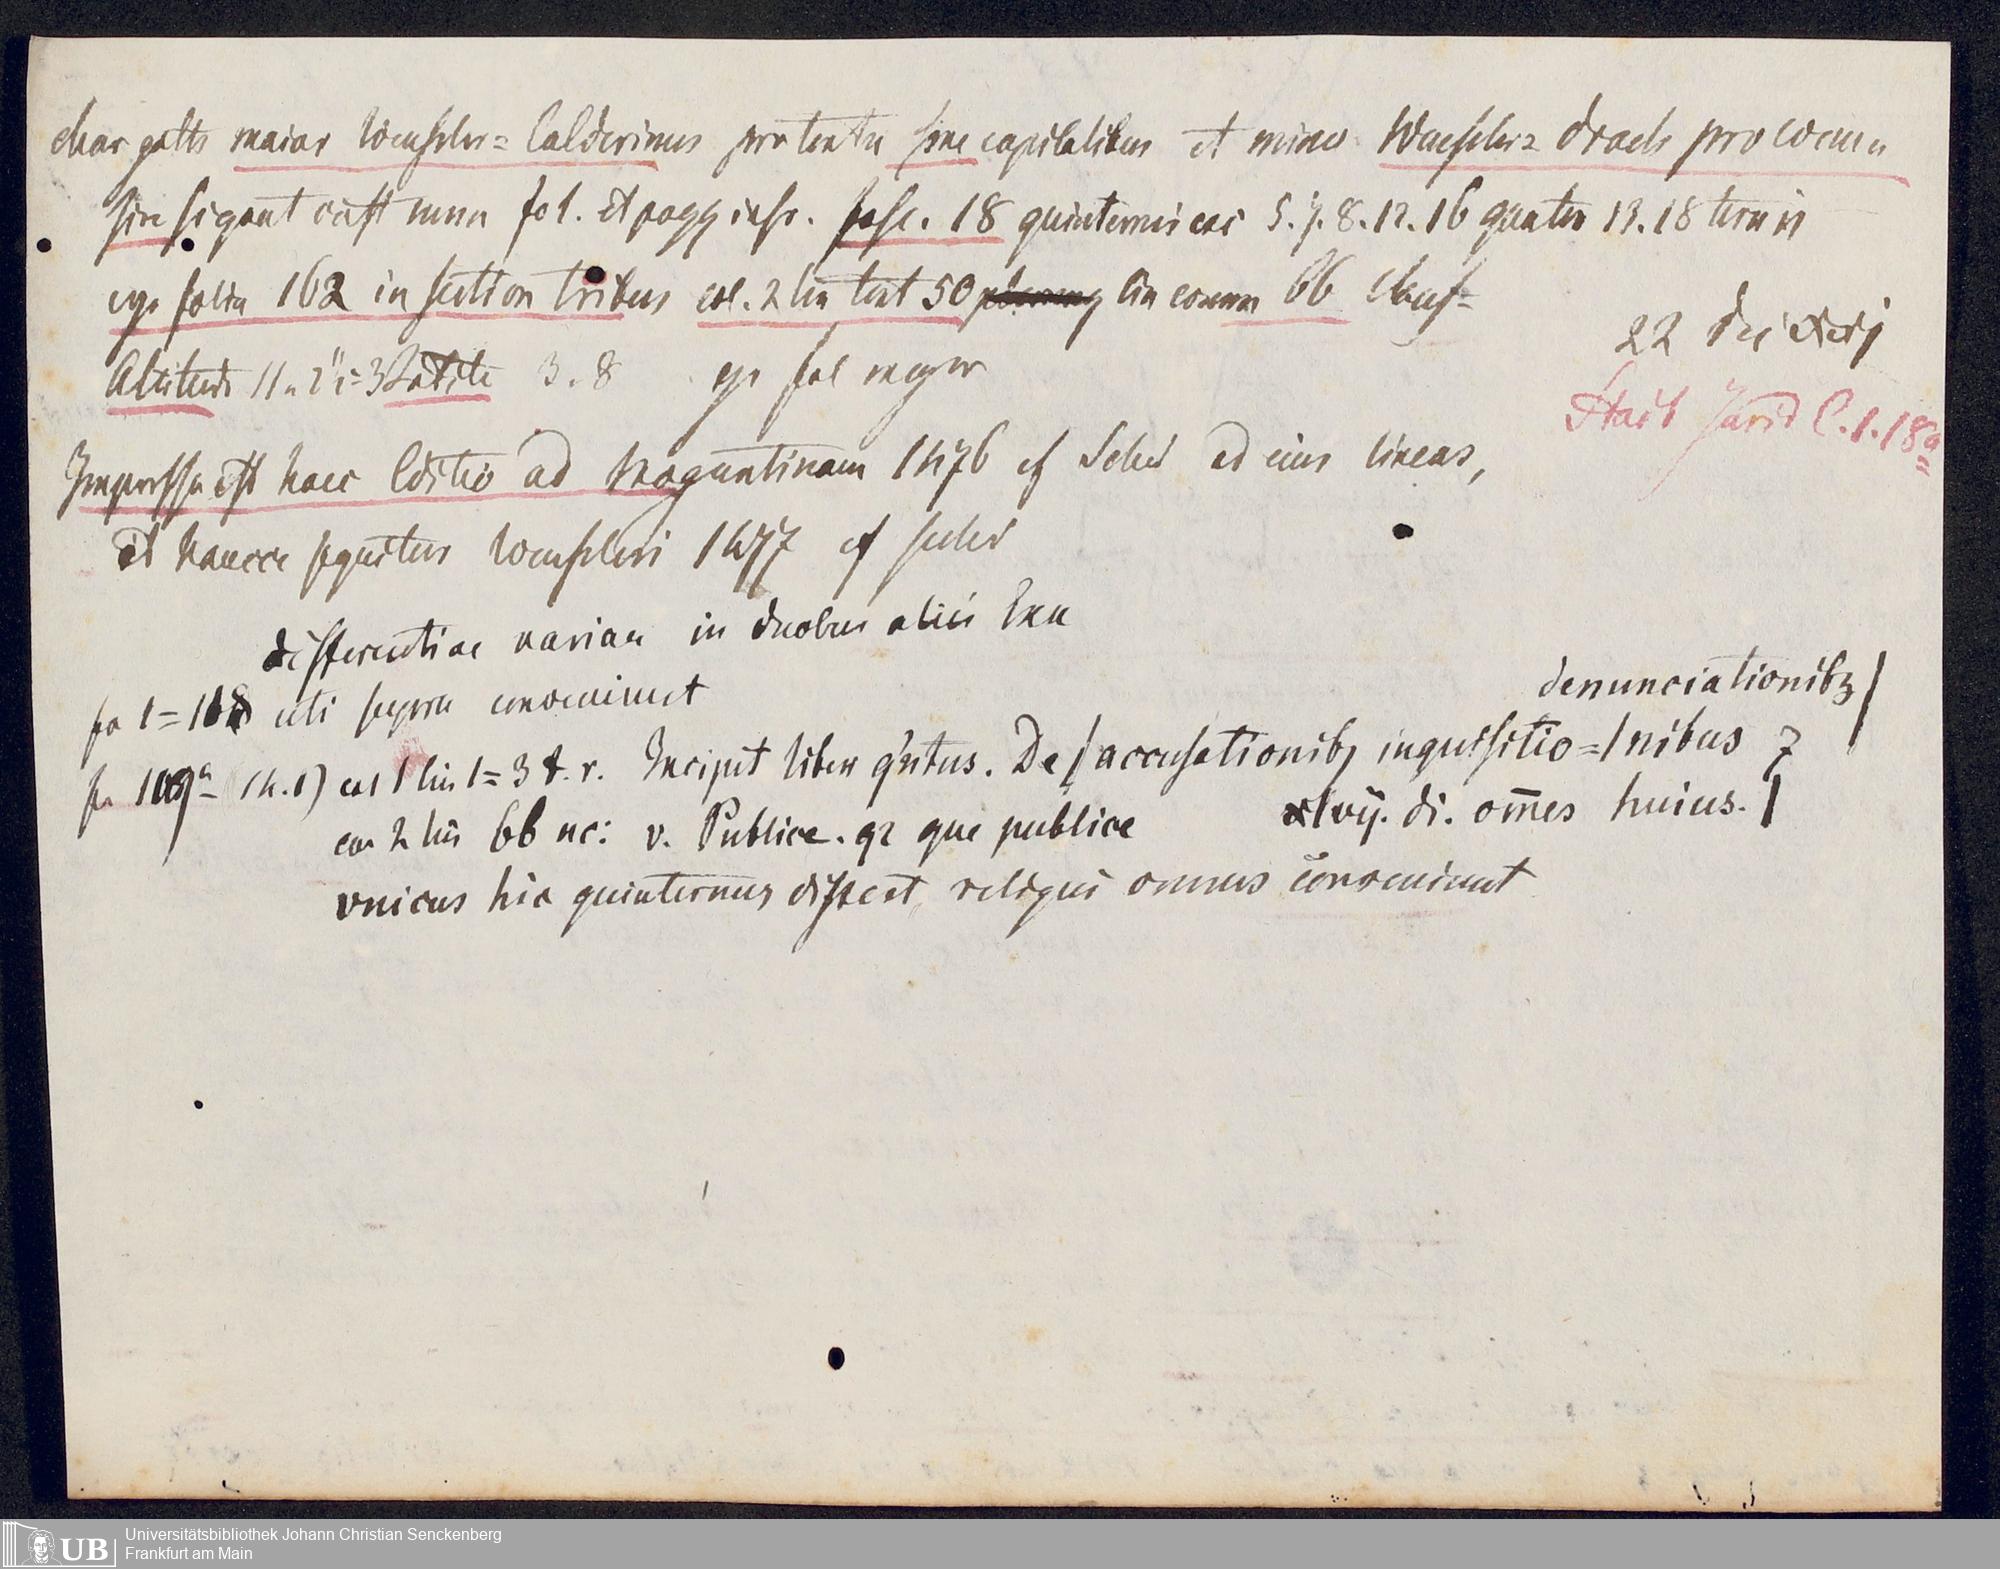 char goth maior Wenssler= Calderinus pro textu sine capitalibus et minor Wenssler= drach pro comm
sine signat cust num fol. et pagg inscr. fasc. 18 quinternis exc 5. 7. 8. 12. 16 quatern 13. 18 ternis
ego folia 162 in section tribus col. 2 lin text 50 lin comm 66
Altitudo 11 3 Latit 3. 8 ego fol major
22 Dec
Stadt Jurid C. 1. 18a
Impressa est haec Editio ad Moguntinam 1476 cf Sched ad eius lineas,
et hancce sequitur Wenssleri 1477 cf sched
differentiae variae in duobus aliis Exx
denunciationibz/
fo 1= uti supra conveniunt
fo 109a (k. 1) col 1 lin 1= 3 t. r. Incipit liber qntus. De / accusationibz inquisitio=/nibus 7
col 2 lin 66 nc: v. Publice. qz que publice xlvij. di. om̅es huius. /
vnicus hic quinternus differt, reliqui omnes conveniunt
Universitätsbibliothek Johann Christian Senckenberg
Frankfurt am Main
UB